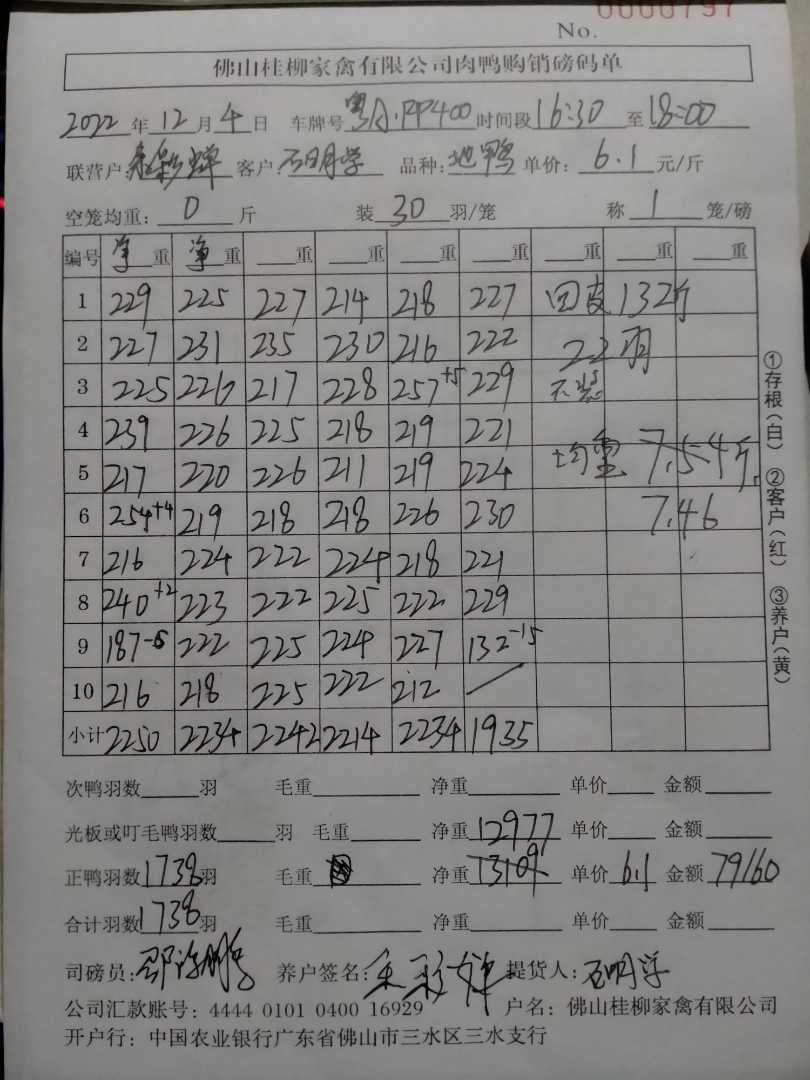 0000797
No.
佛山桂柳家禽有限公司肉鸭购销磅码单
2022 年 12 月 4 日 车牌号 粤A·PP400 时间段 16:30 至 18:00
联营户: 客户: 石明学 品种: 地鸭 单价: 6.1 元/斤
空笼均重: 0 斤 装 30 羽/笼 称 1 笼/磅
编号 净重 净重 重 重 重 重 重 重 重
1 229 225 227 214 218 227 回皮 132斤
2 227 231 235 230 216 222 22羽
3 225 226 217 228 257+5 229 不装
4 239 226 225 218 219 221
5 217 220 226 211 219 224 均重 7.54斤
6 254+4 219 218 218 226 230 7.46
7 216 224 222 224 218 221
8 240+2 223 222 225 222 229
9 187-5 222 225 224 227 132-15
10 216 218 225 222 212
小计 2250 2234 2242 2214 2234 1935
①存根(白) ②客户(红) ③养户(黄)
次鸭羽数 羽 毛重 净重 单价 金额
光板或叮毛鸭羽数 羽 毛重 净重 12977 单价 金额
正鸭羽数 1738 羽 毛重 净重 13109 单价 6.1 金额 79160
合计羽数 1738 羽 毛重 净重 单价 金额
司磅员: 养户签名: 提货人: 石明学
公司汇款账号: 4444 0101 0400 16929 户名: 佛山桂柳家禽有限公司
开户行: 中国农业银行广东省佛山市三水区三水支行